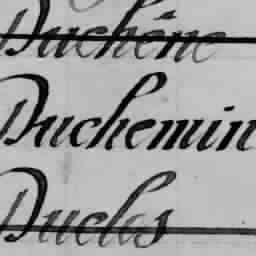 Duchéne
Duchemin
Duclos